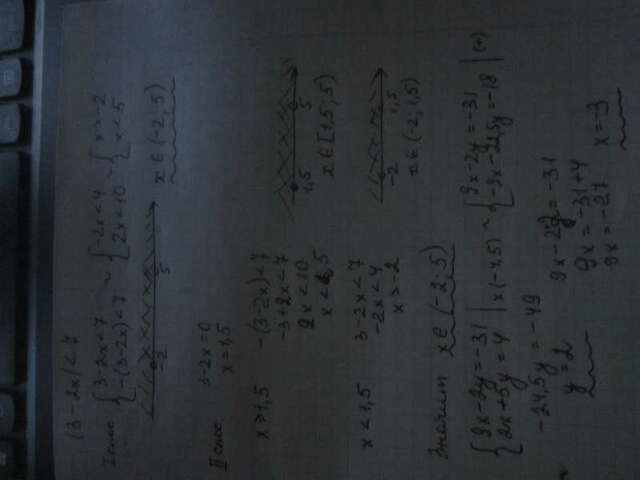 |3-2x|<7
I спос. { 3-2x<7 ~ { -2x<4 ~ { x>-2
-(3-2x)<7 2x<10 x<5
-2 5 x∈(-2;5)
II спос.
3-2x=0
x=1,5
x≥1,5 -(3-2x)<7
-3+2x<7
2x<10
x<5
1,5 5
x∈[1,5;5)
x<1,5 3-2x<7
-2x<4
x>-2
-2 1,5
x∈(-2;1,5)
Значит x∈(-2;5)
{ 9x-2y=-31 | ~ { 9x-2y=-31 | (+)
2x+5y=4 | x(-4,5) -9x-22,5y=-18
-24,5y=-49
y=2
9x-2·2=-31
9x=-31+4
9x=-27
x=-3